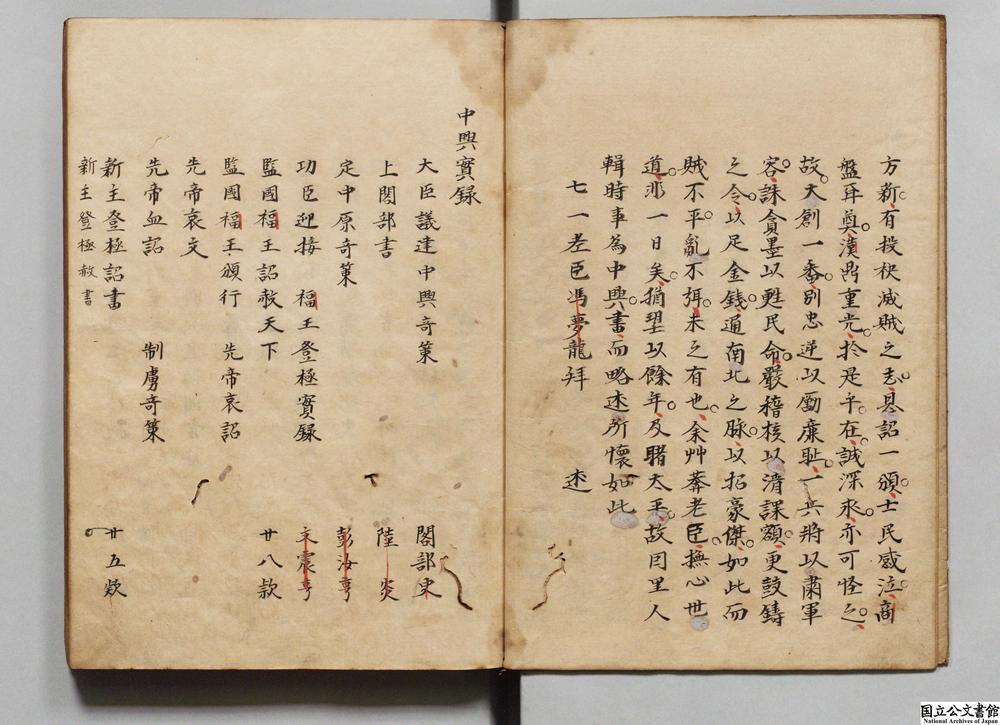 方新有投袂滅賊之志恩詔一頒士民感泣商
盤耳奠漢鼎重光於是乎在誠深永亦可怪之
故天創一番別忠逆以勵廉恥一兵將以肅軍
容誅貪墨以甦民命嚴稽核以清課額更鼓鑄
之令以足金錢通南北之脉以招豪傑如此而
賊不平亂不弭未之有也余艸莽老臣撫心世
道非一日矣猶望以餘年及睹太平故因里人
輯時事為中興書而略述所懷如此
七一老臣馮夢龍拜 述
中興實録
大臣議建中興奇策 閣部史
上閣部書 陸炎
定中原奇策 彭汝亨
功臣迎接 福王登極實録 文震亨
監國福王詔赦天下 廿八款
監國福王頒行 先帝哀詔
先帝哀文
先帝血詔 制虜奇策
新主登極詔書 廿五款
新主登極赦書
国立公文書館
National Archives of Japan